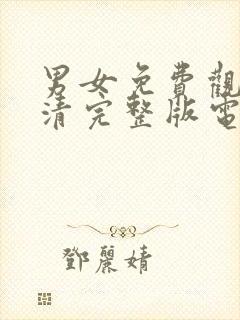 男女免費觀
清完整版電
鄧麗婧